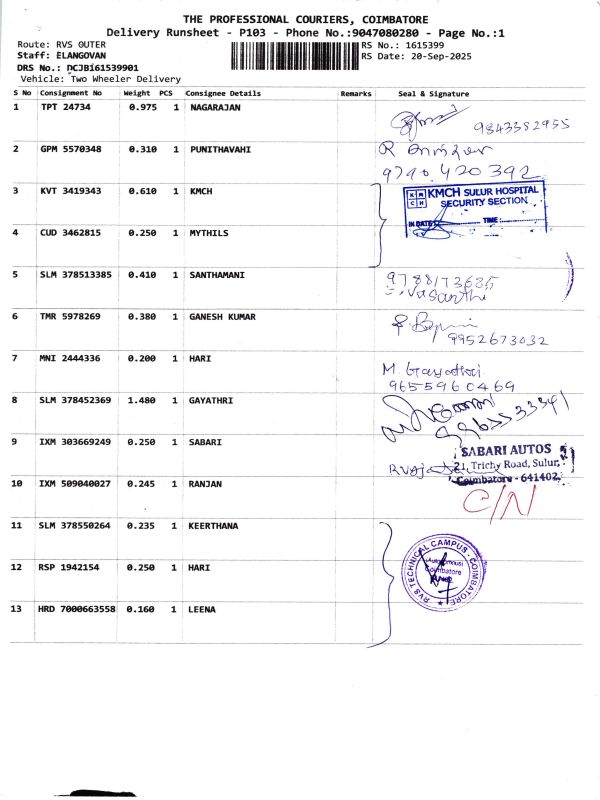 THE PROFESSIONAL COURIERS, COIMBATORE
Delivery Runsheet - P103 - Phone No.:9047080280 - Page No.:1
Route: RVS OUTER
RS No.: 1615399
Staff: ELANGOVAN
RS Date: 20-Sep-2025
DRS No.: DCJBi61539901
Vehicle: Two Wheeler Delivery
S No Consignment No Weight PCS Consignee Details Remarks Seal & Signature
1 TPT 24734 0.975 1 NAGARAJAN
9843382955
2 GPM 5570348 0.310 1 PUNITHAVAHI
R
9790420392
3 KVT 3419343 0.610 1 KMCH
KMCH SULUR HOSPITAL
SECURITY SECTION
IN DATE TIME
4 CUD 3462815 0.250 1 MYTHILS
5 SLM 378513385 0.410 1 SANTHAMANI
9788173685
Vasantha
6 TMR 5978269 0.380 1 GANESH KUMAR
9952673032
7 MNI 2444336 0.200 1 HARI
M. Gayathri
9655960469
8 SLM 378452369 1.480 1 GAYATHRI
9 IXM 303669249 0.250 1 SABARI
SABARI AUTOS
21, Trichy Road, Sulur,
Coimbatore - 641402.
10 IXM 509040027 0.245 1 RANJAN
C/N
11 SLM 378550264 0.235 1 KEERTHANA
RVS TECHNICAL CAMPUS - COIMBATORE
Autonomous
Coimbatore
12 RSP 1942154 0.250 1 HARI
13 HRD 7000663558 0.160 1 LEENA